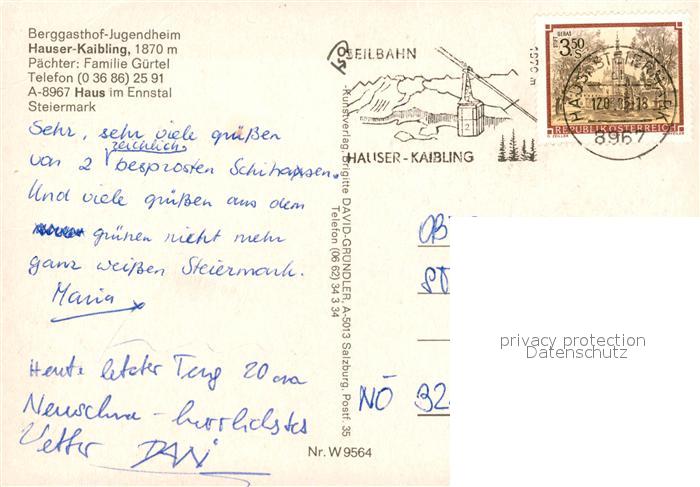 Berggasthof-Jugendheim
Hauser-Kaibling, 1870 m
Pächter: Familie Gürtel
Telefon (0 36 86) 25 91
A-8967 Haus im Ennstal
Steiermark
Sehr, sehr viele grüßen
von 2 zeichlich besprosten Schihasen.
Und viele grüßen aus dem
grünen nicht mehr
ganz weißen Steiermark.
Maria
Heute letzter Tag 20 cm
Neuschnee - herrlichstes
Wetter DANI
Kunstverlag Brigitte DAVID-GRÜNDLER, A-5013 Salzburg, Postf. 35
Telefon (06 62) 34 3 34
Nr. W 9564
SEILBAHN
2
HAUSER-KAIBLING
STIFT GERAS
3.50
S
REPUBLIK ÖSTERREICH
HAUS STEIERMARK
8967
NÖ 32
privacy protection
Datenschutz